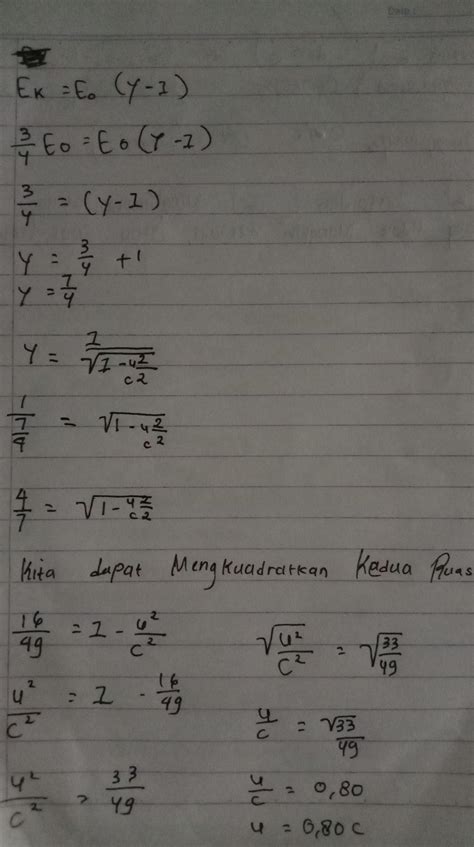 Ek = Eo (γ-1)
3/4 Eo = Eo (γ-1)
3/4 = (γ-1)
γ = 3/4 + 1
γ = 7/4
γ = 1/√(1 - u²/c²)
1/(7/4) = √(1 - u²/c²)
4/7 = √(1 - u²/c²)
Kita dapat Mengkuadratkan Kedua Ruas
16/49 = 1 - u²/c²
u²/c² = 1 - 16/49
u²/c² = 33/49
√(u²/c²) = √(33/49)
u/c = √33/49
u/c = 0,80
u = 0,80 c